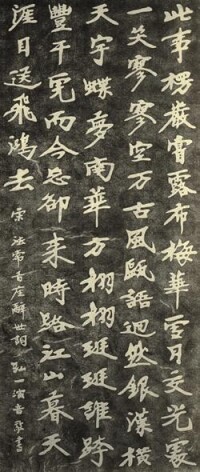 此事楞嚴嘗露布梅華雪月交光處
一笑寥寥空万古風甌語迥然銀漢橫
天宇蝶夢南華方栩栩珽珽誰跨
豐干虎而今忘却來時路江山暮天
涯目送飛鴻去
宋法常首座辭世詞 一演音書